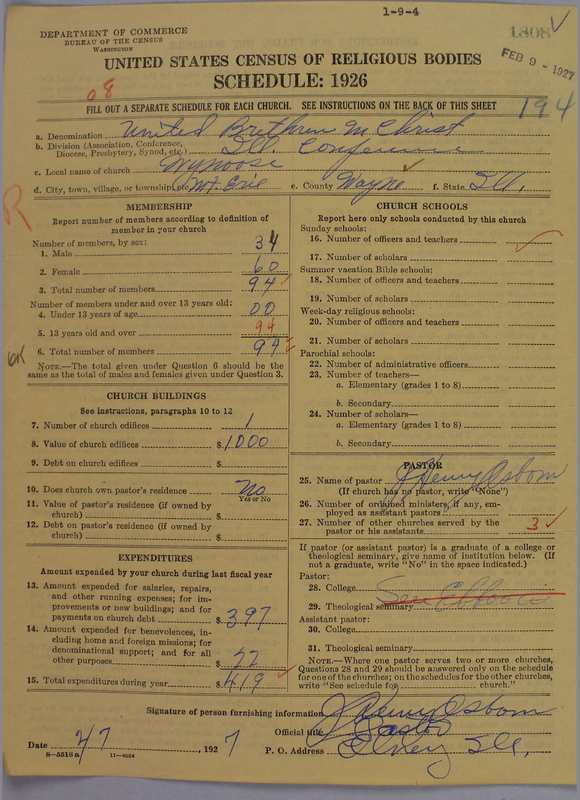 1-9-4
DEPARTMENT OF COMMERCE
BUREAU OF THE CENSUS
WASHINGTON
1808
FEB 9 - 1927
UNITED STATES CENSUS OF RELIGIOUS BODIES
SCHEDULE: 1926
08
194
FILL OUT A SEPARATE SCHEDULE FOR EACH CHURCH. SEE INSTRUCTIONS ON THE BACK OF THIS SHEET
a. Denomination United Brethren in Christ
b. Division (Association, Conference, Diocese, Presbytery, Synod, etc.) Ill. Conference
c. Local name of church Wynoose
d. City, town, village, or township Mt. Erie e. County Wayne f. State Ill.
R
MEMBERSHIP
Report number of members according to definition of member in your church
Number of members, by sex:
1. Male 34
2. Female 60
3. Total number of members 94
Number of members under and over 13 years old:
4. Under 13 years of age 00
5. 13 years old and over 94
6. Total number of members 94
OK
NOTE.—The total given under Question 6 should be the same as the total of males and females given under Question 3.
CHURCH BUILDINGS
See instructions, paragraphs 10 to 12
7. Number of church edifices 1
8. Value of church edifices $ 1000
9. Debt on church edifices $
10. Does church own pastor's residence No
Yes or No
11. Value of pastor's residence (if owned by church) $
12. Debt on pastor's residence (if owned by church) $
EXPENDITURES
Amount expended by your church during last fiscal year
13. Amount expended for salaries, repairs, and other running expenses; for improvements or new buildings; and for payments on church debt $ 397
14. Amount expended for benevolences, including home and foreign missions; for denominational support; and for all other purposes $ 22
15. Total expenditures during year $ 419
CHURCH SCHOOLS
Report here only schools conducted by this church
Sunday schools:
16. Number of officers and teachers
17. Number of scholars
Summer vacation Bible schools:
18. Number of officers and teachers
19. Number of scholars
Week-day religious schools:
20. Number of officers and teachers
21. Number of scholars
Parochial schools:
22. Number of administrative officers
23. Number of teachers—
a. Elementary (grades 1 to 8)
b. Secondary
24. Number of scholars—
a. Elementary (grades 1 to 8)
b. Secondary
PASTOR
25. Name of pastor J Henry Osborn
(If church has no pastor, write "None")
26. Number of ordained ministers, if any, employed as assistant pastors
27. Number of other churches served by the pastor or his assistants 3
If pastor (or assistant pastor) is a graduate of a college or theological seminary, give name of institution below. (If not a graduate, write "No" in the space indicated.)
Pastor:
28. College
29. Theological seminary
Assistant pastor:
30. College
31. Theological seminary
NOTE.—Where one pastor serves two or more churches, Questions 28 and 29 should be answered only on the schedule for one of the churches; on the schedules for the other churches, write "See schedule for church."
Signature of person furnishing information J Henry Osborn
Official title Pastor
Date 2/7, 1927 P. O. Address Olney Ill.
8—5518a 11—9054